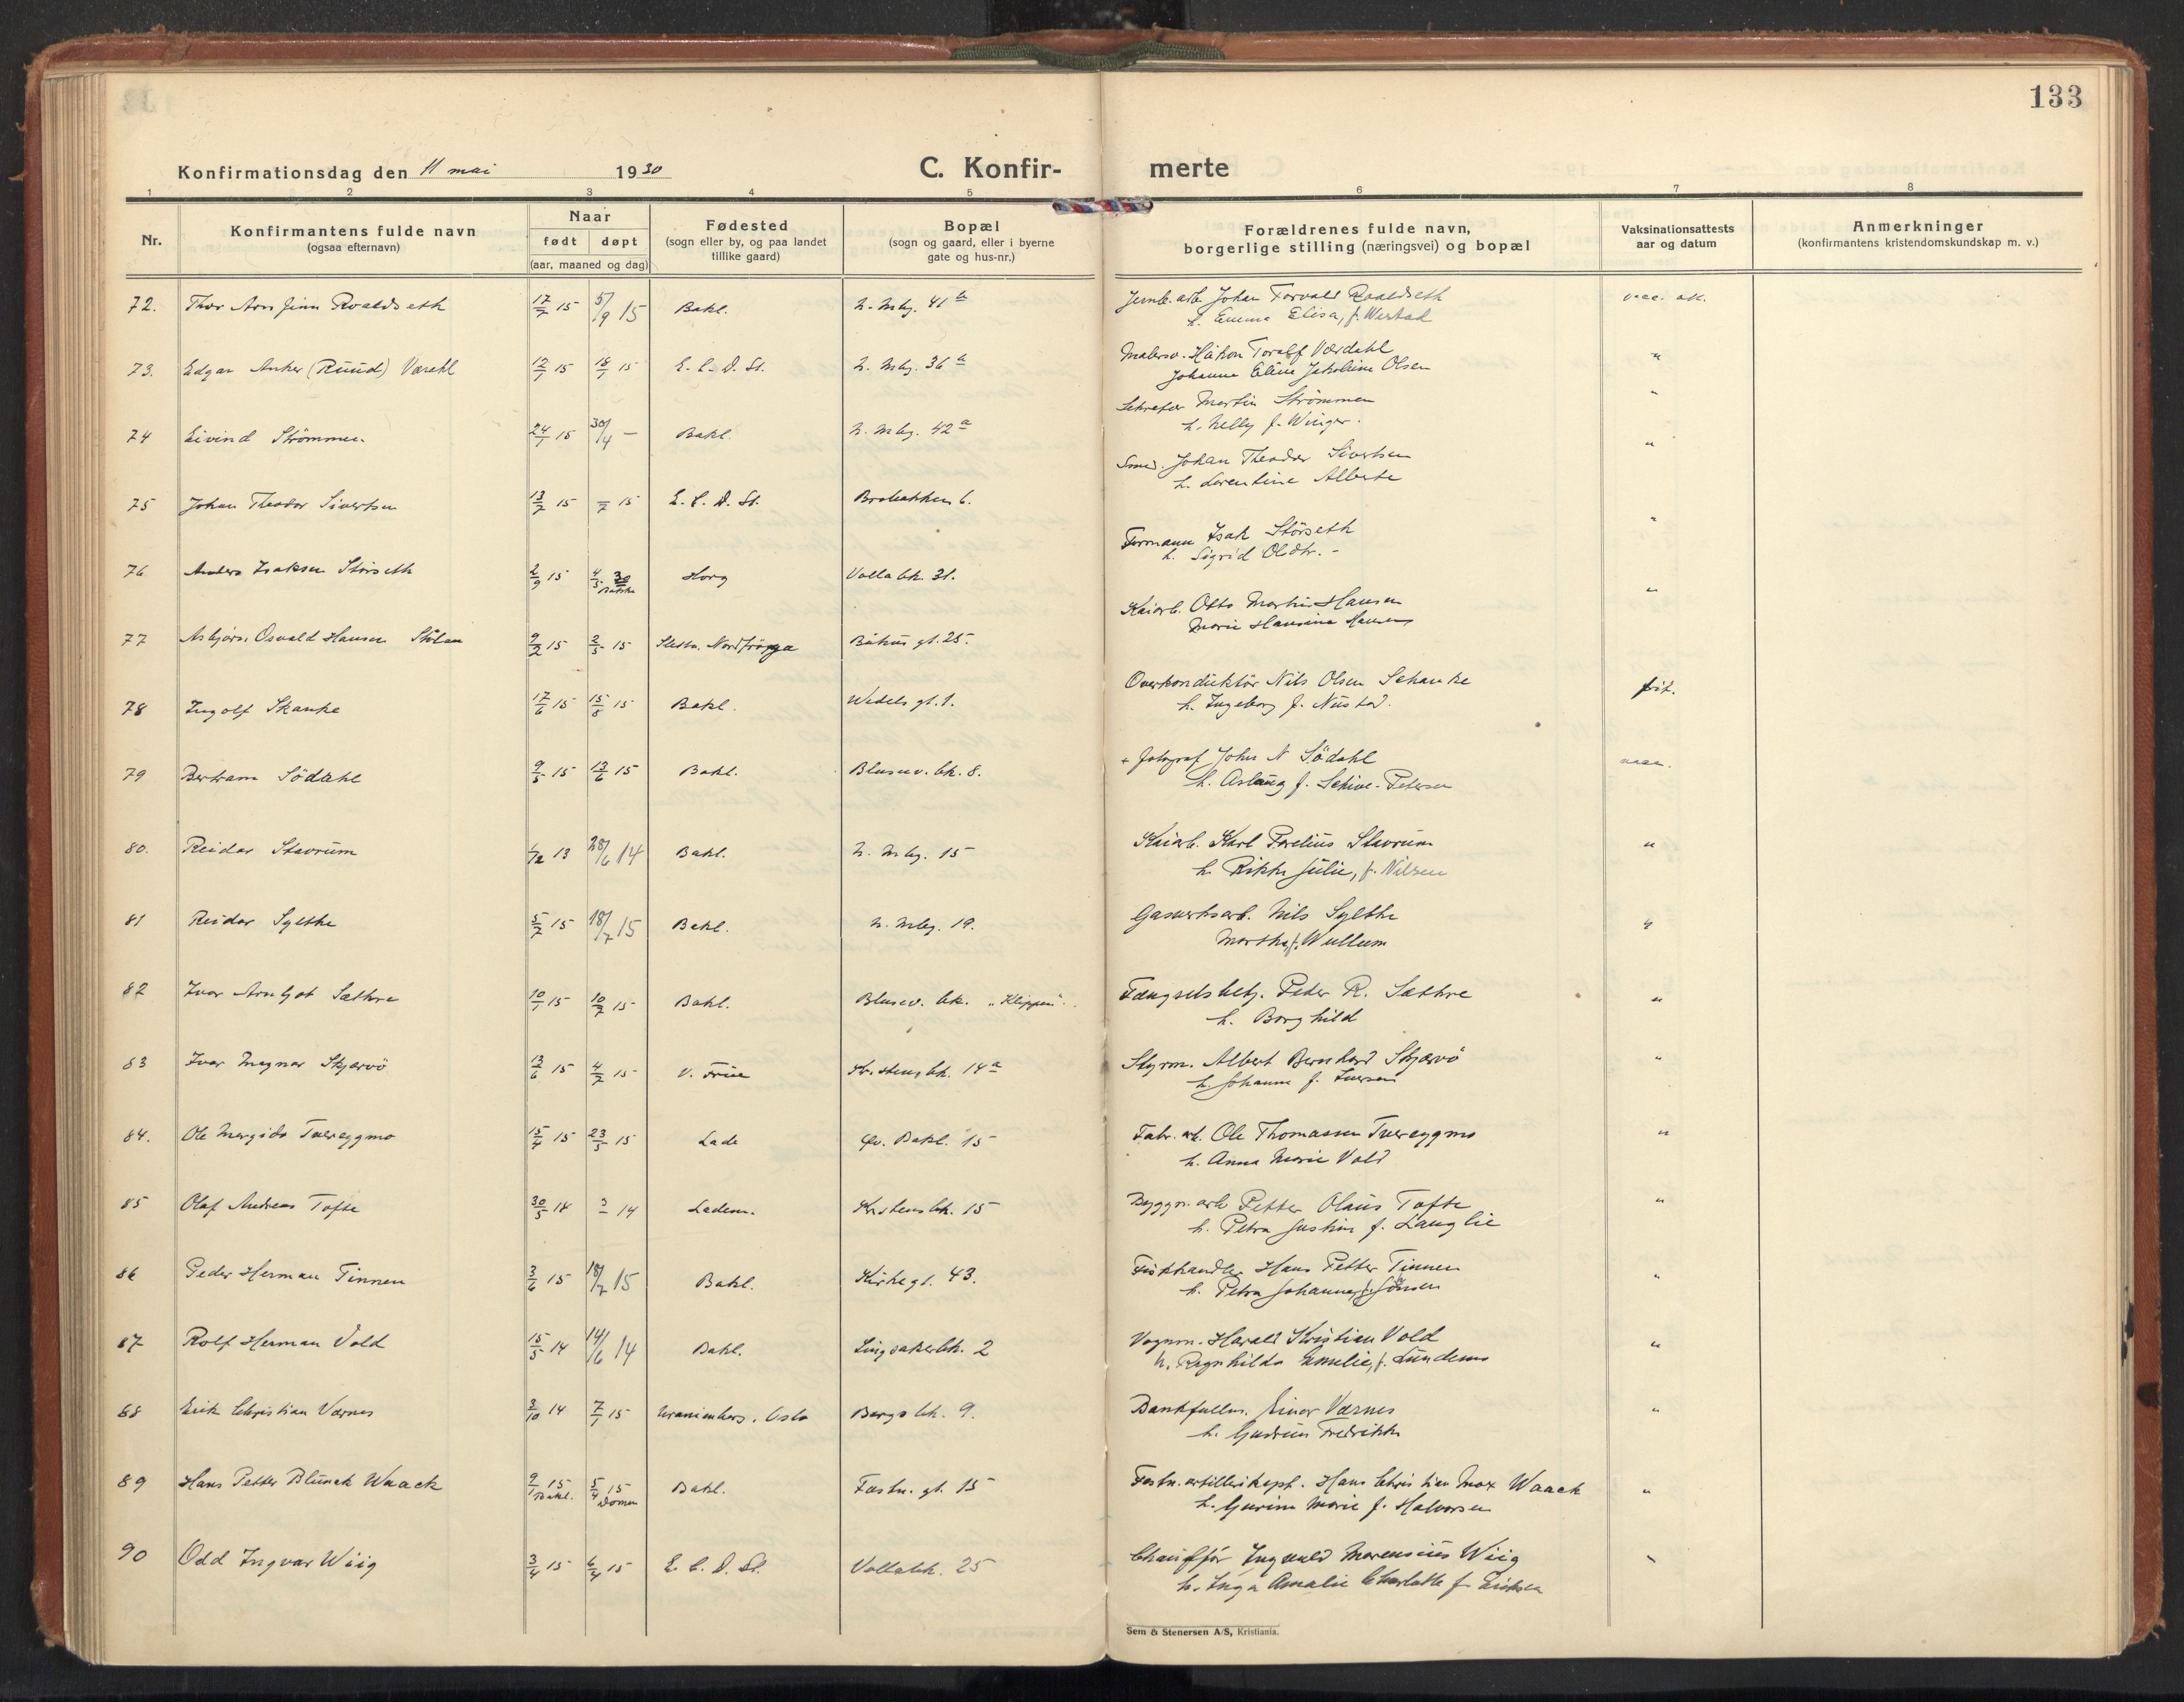 133
Konfirmationsdag den 11 mai 1930
C. Konfir- merte
1 2 3 4 5 6 7 8
Nr.
Konfirmantens fulde navn
(ogsaa efternavn)
Naar
født døpt
(aar, maaned og dag)
Fødested
(sogn eller by, og paa landet
tillike gaard)
Bopæl
(sogn og gaard, eller i byerne
gate og hus-nr.)
Forældrenes fulde navn,
borgerlige stilling (næringsvei) og bopæl
Vaksinationsattests
aar og datum
Anmerkninger
(konfirmantens kristendomskundskap m. v.)
72. Thor Arn Finn Roaldseth 17/7 15 5/9 15 Bakl. N. Mbg. 41 b Jernb. arb. Johan Torvald Roaldseth vacc. att.
h. Emma Elisa, f. Westad
73. Edgar Anker (Ruud) Værdahl 12/1 15 18/1 15 E. C. D. St. N. Mbg. 36 a Malersv. Håkon Toralf Værdahl "
Johanna Eline Jakobine Olsen
74 Eivind Strömmen 24/1 15 30/4 — Bakl. N. Mbg. 42 a Martin Strömmen "
h. Nelly f. Winger.
75 Johan Theodor Sivertsen 13/7 15 /7 15 E. C. D. St. Brobakken 6. Smed. Johan Theodor Sivertsen "
h. Lorentine Alberte
76 Anders Isaksen Störseth 2/9 15 4/5 30 Horg Vollabk. 31. Formann Isak Störseth "
h. Sigrid Olsdtr. -
77 Asbjörn Osvald Hansen 9/2 15 2/5 15 Nordfröya Båhus gt. 25. Kaiarb. Otto Martin Hansen "
Marie Hansine Hansen
78 Ingolf Skanke 17/6 15 15/8 15 Bakl. Wedels gt. 1. Overkonduktör Nils Olsen Schanke
h. Ingeborg f. Nustad.
79 Bertram Södahl 9/5 15 13/6 15 Bakl. Blusuv. bk. 8. + fotograf John N Södahl vacc.
h. Aslaug f. Schive-Petersen
80. Reidar Stavrum 1/12 13 28/6 14 Bakl. N. Mbg. 15 Kaiarb. Karl Parelius Stavrum "
h. Rikke Julie, f. Nilsen
81 Reidar Sylthe 5/7 15 18/7 15 Bakl. N. Mbg. 19. Gasverksarb. Nils Sylthe "
Martha, f. Wullum
82 Ivar Arnljot Sæthre 10/1 15 10/7 15 Bakl. Blusuv. bk. "Klippen". Fængselsbetj. Peder R. Sæthre "
h. Borghild
83 Ivar Magnar Skjærvö 13/6 15 4/7 15 V. Frue Kristensbk. 14 a Styrm. Albert Bernhard Skjærvö "
h. Johanna f. Iversen
84. Ole Mergido Tvereggmo 15/4 15 23/5 15 Lade Öv. Bakl. 15 Fabr. arb. Ole Thomassen Tvereggmo "
h. Anna Marie Vold
85 Olaf Andreas Tofte 30/5 14 ? 14 Lademn. Kristensbk. 15 Byggn. arb Petter Olaus Tofte "
h. Petra Justine f. Langlie
86 Peder Herman Tinnen 3/6 15 18/7 15 Bakl. Kirkegt. 43. Fiskhandler Hans Petter Tinnen "
h. Petra Johanna, f. Jönsen
87 Rolf Herman Vold 15/5 14 14/6 14 Bakl. Singsakerbk. 2 Vognm. Harald Kristian Vold "
h. Ragnhilda Emelie, f. Lundemo
88 Erik Christian Værnes 3/10 14 7/1 15 Uranienborg, Oslo Bergsbk. 9. Bankfullm. Einar Værnes "
h. Gudrun Fredrikke
89 Hans Petter Blunck Waack 9/1 15 Bakl. 5/4 15 Domen Bakl. Festn. gt. 15 Festn. artillerikapt. Hans Christian Max Waack "
h. Gurine Marie f. Halvorsen
90 Odd Ingvar Wiig 3/4 15 6/4 15 E. C. D. St. Vollabk. 25 Chauffør Ingvald Marensius Wiig
h. Inga Amalie Charlotte f. Eriksen
Sem & Stenersen A/S, Kristiania.